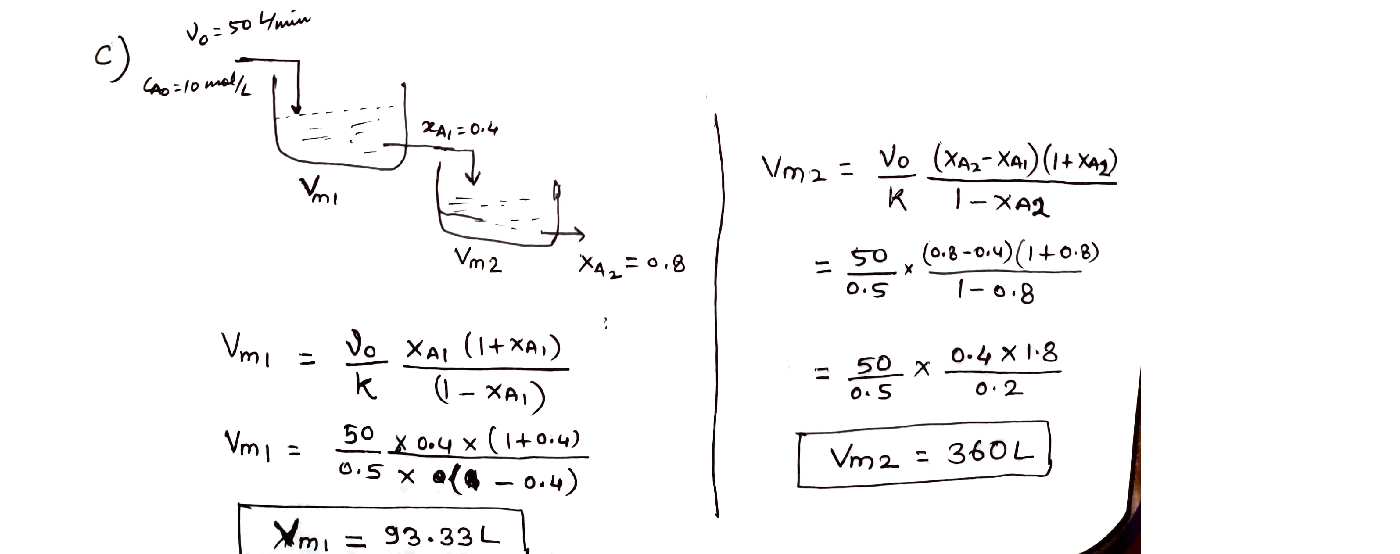 c)
ν₀ = 50 L/min
C_A0 = 10 mol/L
x_A1 = 0.4
Vm1
Vm2
X_A2 = 0.8
Vm1 = ν₀/k X_A1 (1 + X_A1)/(1 - X_A1)
Vm1 = 50 × 0.4 × (1 + 0.4)/0.5 × (1 - 0.4)
Vm1 = 93.33 L
Vm2 = ν₀/k (X_A2 - X_A1)(1 + X_A2)/1 - X_A2
= 50/0.5 × (0.8 - 0.4)(1 + 0.8)/1 - 0.8
= 50/0.5 × 0.4 × 1.8/0.2
Vm2 = 360 L